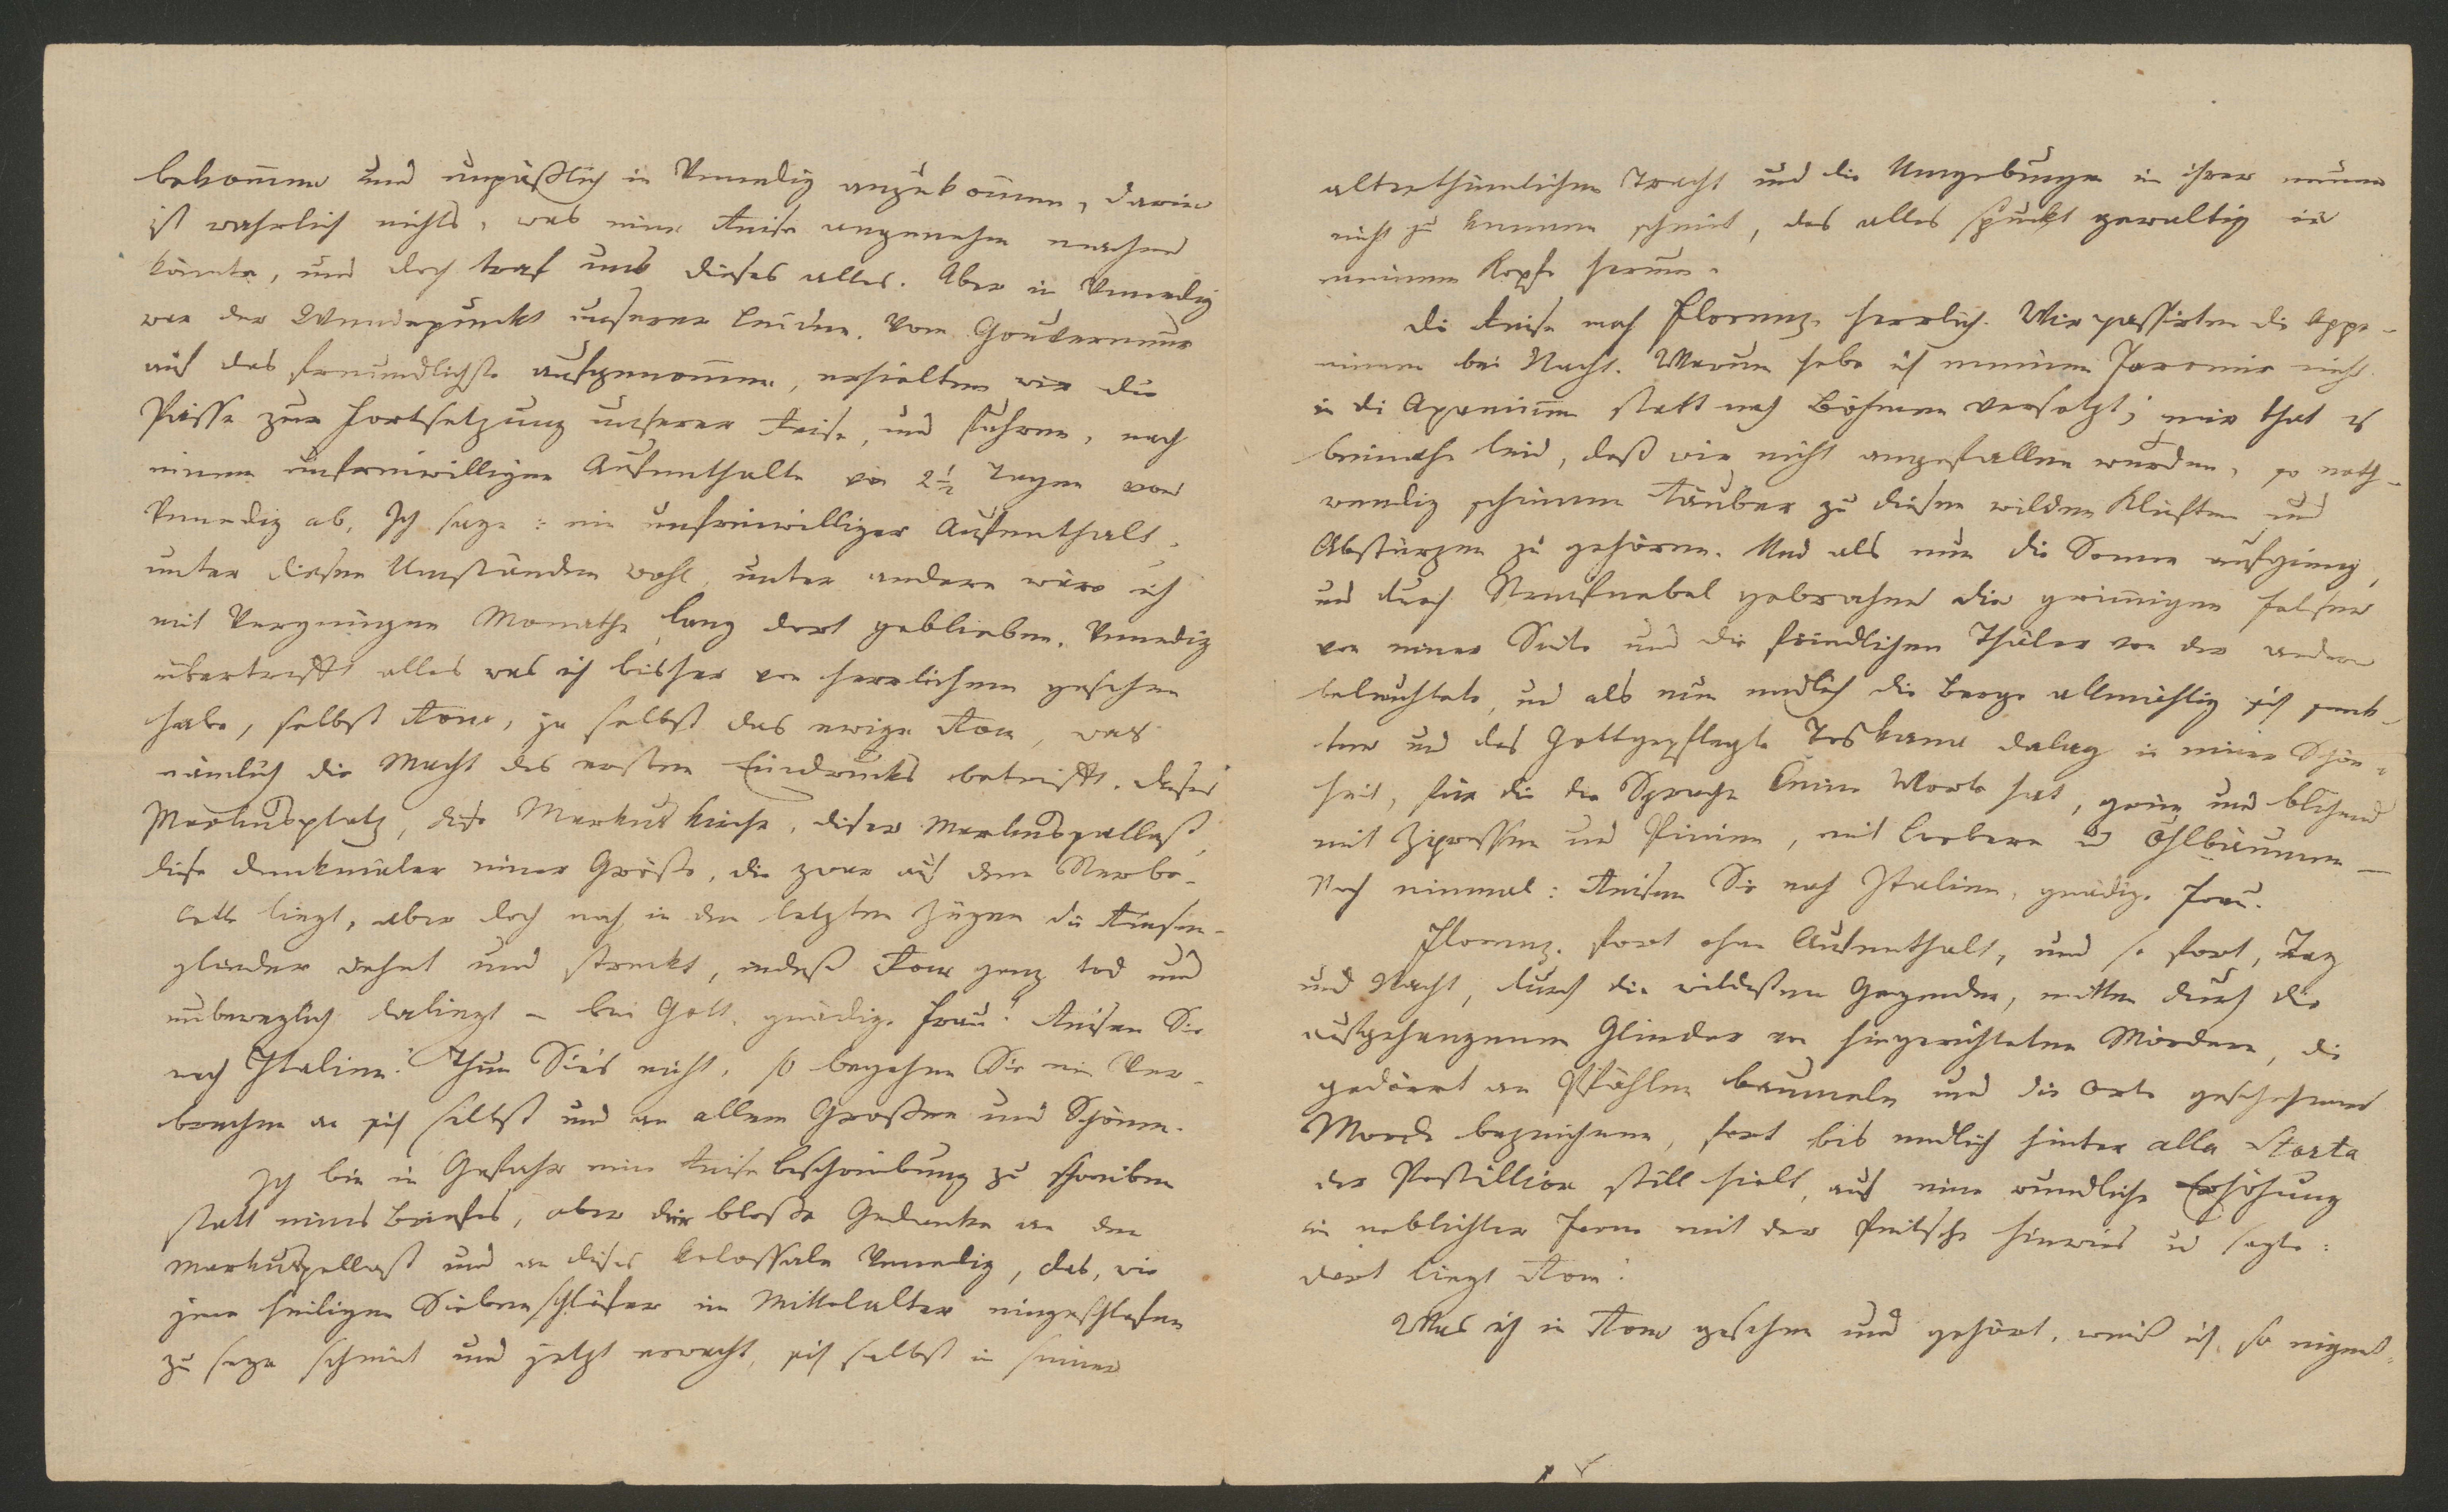 bekommen und unpäßlich in Venedig anzukommen, darin
ist wahrlich nichts, was eine Reise angenehm machen
könnte, und doch traf uns dieses alles. Aber in Venedig
war der Wendepunckt unserer Leiden. Vom Gouverneur
auf das freundlichste aufgenommen, erhielten wir die
Pässe zur Fortsetzung unserer Reise, und fuhren, nach
einem unfreiwilligen Aufenthalte von 2½ Tagen von
Venedig ab. Ich sage: ein unfreiwilliger Aufenthalt,
unter diesen Umständen wohl, unter andern wäre ich
mit Vergnügen Monathe lang dort geblieben. Venedig
übertrifft alles was ich bisher von herrlichem gesehen
habe, selbst Rom, ja selbst das ewige Rom, was
nämlich die Macht des ersten Eindrucks betrifft. Dieser
Markusplatz, diese Markuskirche, dieser Markuspallast,
diese Denkmäler einer Größe, die zwar auf dem Sterbe-
bette liegt, aber doch noch in den letzten Zügen die Riesen-
glieder dehnt und streckt, indeß Rom ganz tod und
unbeweglich daliegt – bei Gott, gnädige Frau! Reisen Sie
nach Italien! Thun Sie's nicht, so begehen Sie ein Ver-
brechen an sich selbst und an allem Großen und Schönen.
Ich bin in Gefahr eine Reisebeschreibung zu schreiben
statt eines Briefes, aber der bloße Gedanke an den
Markuspallast und an dieses kolossale Venedig, das, wie
jene heiligen Siebenschläfer im Mittelalter eingeschlafen
zu seyn scheint und jetzt erwacht, sich selbst in seiner
alterthümlichen Tracht und die Umgebungen in ihrer neuen
nicht zu kennen scheint, das alles spuckt gewaltig in
meinem Kopfe herum.
Die Reise nach Florenz herrlich. Wir passirten die Appe-
ninen bei Nacht. Warum habe ich meinen Jaromir nicht
in die Apeninen statt nach Böhmen versetzt; mir that es
beinahe leid, daß wir nicht angefallen wurden, so noth-
wendig schienen Räuber zu diesen wilden Klüften und
Abstürzen zu gehören. Und als nun die Sonne aufgieng,
und durch Nebel gebrochen die grimmigen Felsen
von einer Seite und die freundlichen Thäler von der andern
beleuchtete, und als nun endlich die Berge allmählig sich senk-
ten und das Gottgepflegte Toskana dalag in einer Schön-
heit, für die die Sprache keine Worte hat, grün und blühend
mit Zipressen und Pinien, mit Lorbern u Öhlbäumen –
Noch einmal: Reisen Sie nach Italien, gnädige Frau.
Florenz. fort ohne Aufenthalt, und so fort, Tag
und Nacht, durch die wildesten Gegenden, mitten durch die
aufgehangenen Glieder von hingerichteten Mördern, die
gedörrt an Pfählen baumeln und die Orte geschehener
Morde bezeichnen, fort bis endlich hinter alla Storta
der Postillion still hielt, auf eine rundliche Erhöhung
in neblichter Ferne mit der Peitsche hinwies u sagte:
dort liegt Rom!
Was ich in Rom gesehen und gehört, weiß ich so eigent-